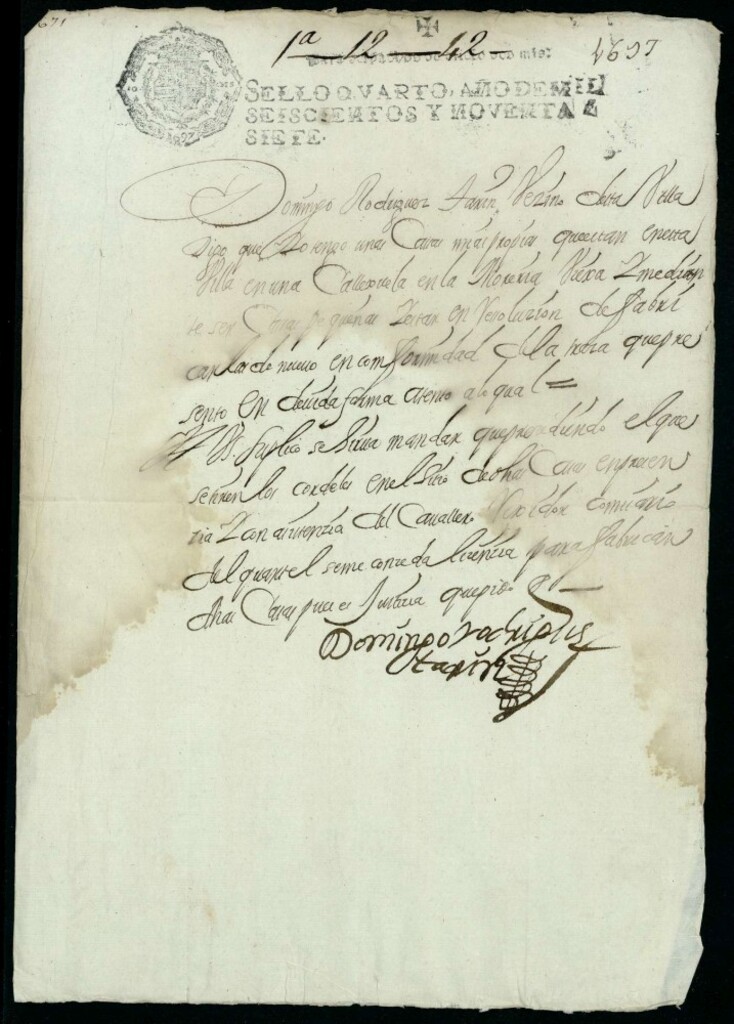 1ª 12 42
1697
SELLO QVARTO, AÑO DE MIL
SEISCIENTOS Y NOVENTA Y
SIETE.
Domingo Rodriguez Vezino desta Villa
Digo que Yo tengo unas Casas mias propias que estan en esta
Villa en una Callexuela en la Moreria Viexa
te ser Casas pequeñas Y estar en Resoluzion de fabri
carlas de nuevo en comformidad de la traza que pre
sento en devida forma atento a lo qual =
A V. S. Suplico se sirva mandar que prezediendo el que
se tiren los cordeles en el sitio de dhas Casas
zia Y con asistenzia del Cavallero Rexidor comisario
del quartel se me conzeda licencia para fabricar
dhas Casas pues es Justicia que pido
Domingo rodrigues